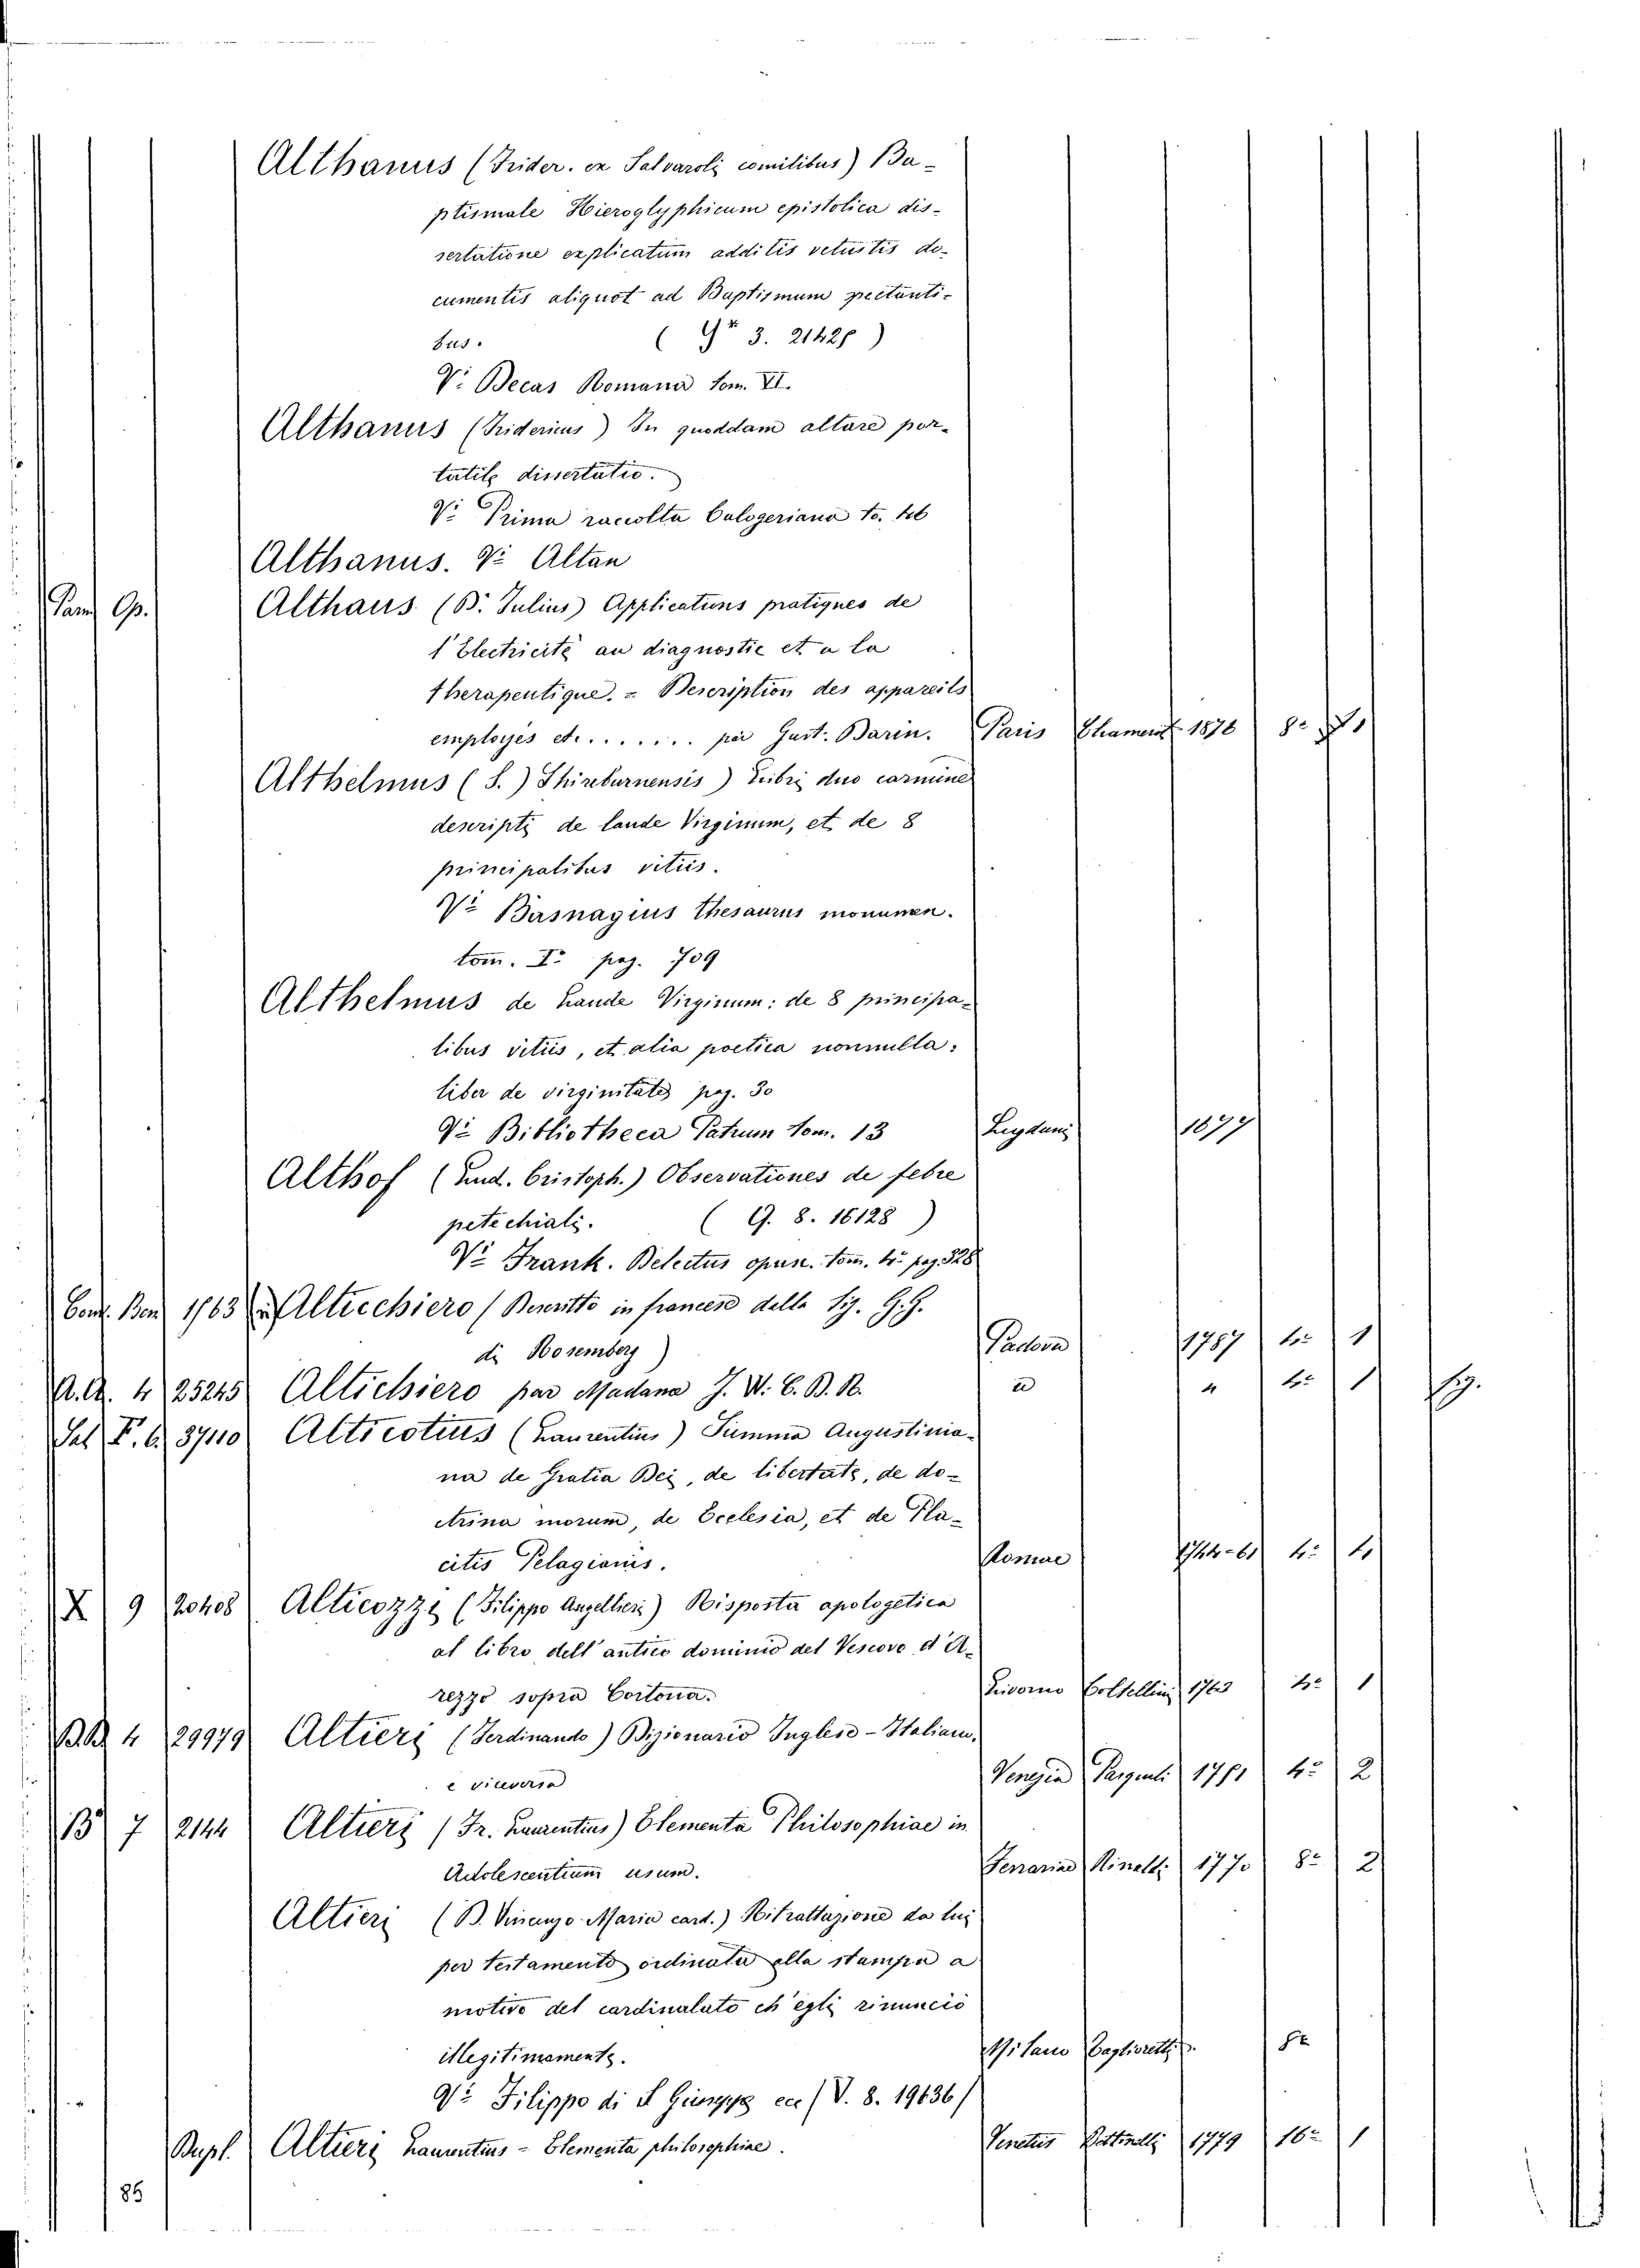 Althanus (Frider. ex Salvaroli comitibus) Ba-
ptismale Hieroglyphicum epistolica dis-
sertatione explicatum additis vetustis do-
cumentis aliquot ad Baptismum spectanti-
bus. ( 3. 21428 )
V: Decas Romana tom. VI.
Althanus (Fridericus) In quoddam altare por-
tatile dissertatio.
V: Prima raccolta Calogeriana to. 46
Althanus. V: Altan
Pam Op. Althaus (D. Julius) Applications pratiques de
l'Electricité au diagnostic et a la
therapeutique. = Description des appareils
employés et....... par Gust. Darin. Paris 1878 8= 1
Althelmus (S.) Shireburnensis) Libri duo carmine
descripti de laude Virginum, et de 8
principalibus vitiis.
V: Basnagius thesaurus monumen.
tom. I: pag. 709
Althelmus de Laude Virginum: de 8 principa-
libus vitiis, et alia poetica nonnulla:
liber de virginitate pag. 30
V: Bibliotheca Patrum tom. 13 Lugduni 1677
Althof (Lud. Cristoph.) Observationes de febre
petechiali. ( G. 8. 16128 )
V: Frank. Delectus opusc. tom. 4: pag. 328
Cont. Ben 1763 Alticchiero (Descritto in francese dalla Sig. G. G.
di Rosemberg) Padova 1787 4= 1
A.A. 4 25245 Altichiero par Madana J. W. C. D. R. id " 4= 1 fig.
Sal F. 6. 37110 Alticotius (Laurentius) Summa Augustinia-
na de Gratia Dei, de libertate, de do-
ctrina morum, de Ecclesia, et de Pla-
citis Pelagianis. Romae 1744-61 4= 4
X 9 20408 Alticozzi (Filippo Angellieri) Risposta apologetica
al libro dell'antico dominio del Vescovo d'A-
rezzo sopra Cortona. Livorno Coltellini 1763 4= 1
BB 4 29979 Altieri (Ferdinando) Dizionario Inglese - Italiano,
e viceversa Venezia Pasquali 1751 4= 2
B 7 2144 Altieri (Fr. Laurentius) Elementa Philosophiae in
Adolescentium usum. Ferrariae Rinaldi 1770 8= 2
Altieri (D. Vincenzo Maria card.) Ritrattazione da lui
per testamento ordinata alla stampa a
motivo del cardinalato ch'egli rinunciò
illegitimamente. Milano 8=
V: Filippo di S Giuseppe ecc (V. 8. 19636)
Dupl. Altieri Laurentius - Elementa philosophiae. Venetiis Bettinelli 1779 16= 1
85